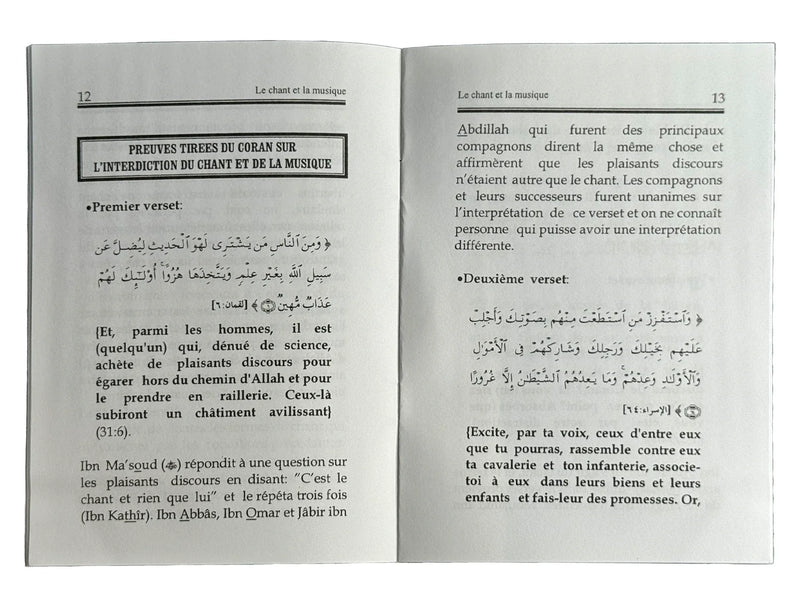 12
Le chant et la musique
PREUVES TIREES DU CORAN SUR
L'INTERDICTION DU CHANT ET DE LA MUSIQUE
•Premier verset:
﴿ وَمِنَ ٱلنَّاسِ مَن يَشْتَرِى لَهْوَ ٱلْحَدِيثِ لِيُضِلَّ عَن
سَبِيلِ ٱللَّهِ بِغَيْرِ عِلْمٍ وَيَتَّخِذَهَا هُزُوًا ۚ أُو۟لَـٰٓئِكَ لَهُمْ
عَذَابٌ مُّهِينٌ ﴿٦﴾ ﴾ [لقمان:٦]
{Et, parmi les hommes, il est
(quelqu'un) qui, dénué de science,
achète de plaisants discours pour
égarer hors du chemin d'Allah et pour
le prendre en raillerie. Ceux-là
subiront un châtiment avilissant}
(31:6).
Ibn Ma'soud () répondit à une question sur
les plaisants discours en disant: "C'est le
chant et rien que lui" et le répéta trois fois
(Ibn Kathîr). Ibn Abbâs, Ibn Omar et Jâbir ibn
Le chant et la musique
13
Abdillah qui furent des principaux
compagnons dirent la même chose et
affirmèrent que les plaisants discours
n'étaient autre que le chant. Les compagnons
et leurs successeurs furent unanimes sur
l'interprétation de ce verset et on ne connaît
personne qui puisse avoir une interprétation
différente.
•Deuxième verset:
﴿ وَٱسْتَفْزِزْ مَنِ ٱسْتَطَعْتَ مِنْهُم بِصَوْتِكَ وَأَجْلِبْ
عَلَيْهِم بِخَيْلِكَ وَرَجِلِكَ وَشَارِكْهُمْ فِى ٱلْأَمْوَٰلِ
وَٱلْأَوْلَـٰدِ وَعِدْهُمْ ۚ وَمَا يَعِدُهُمُ ٱلشَّيْطَـٰنُ إِلَّا غُرُورًا
﴿٦٤﴾ ﴾ [الإسراء:٦٤]
{Excite, par ta voix, ceux d'entre eux
que tu pourras, rassemble contre eux
ta cavalerie et ton infanterie, associe-
toi à eux dans leurs biens et leurs
enfants et fais-leur des promesses. Or,